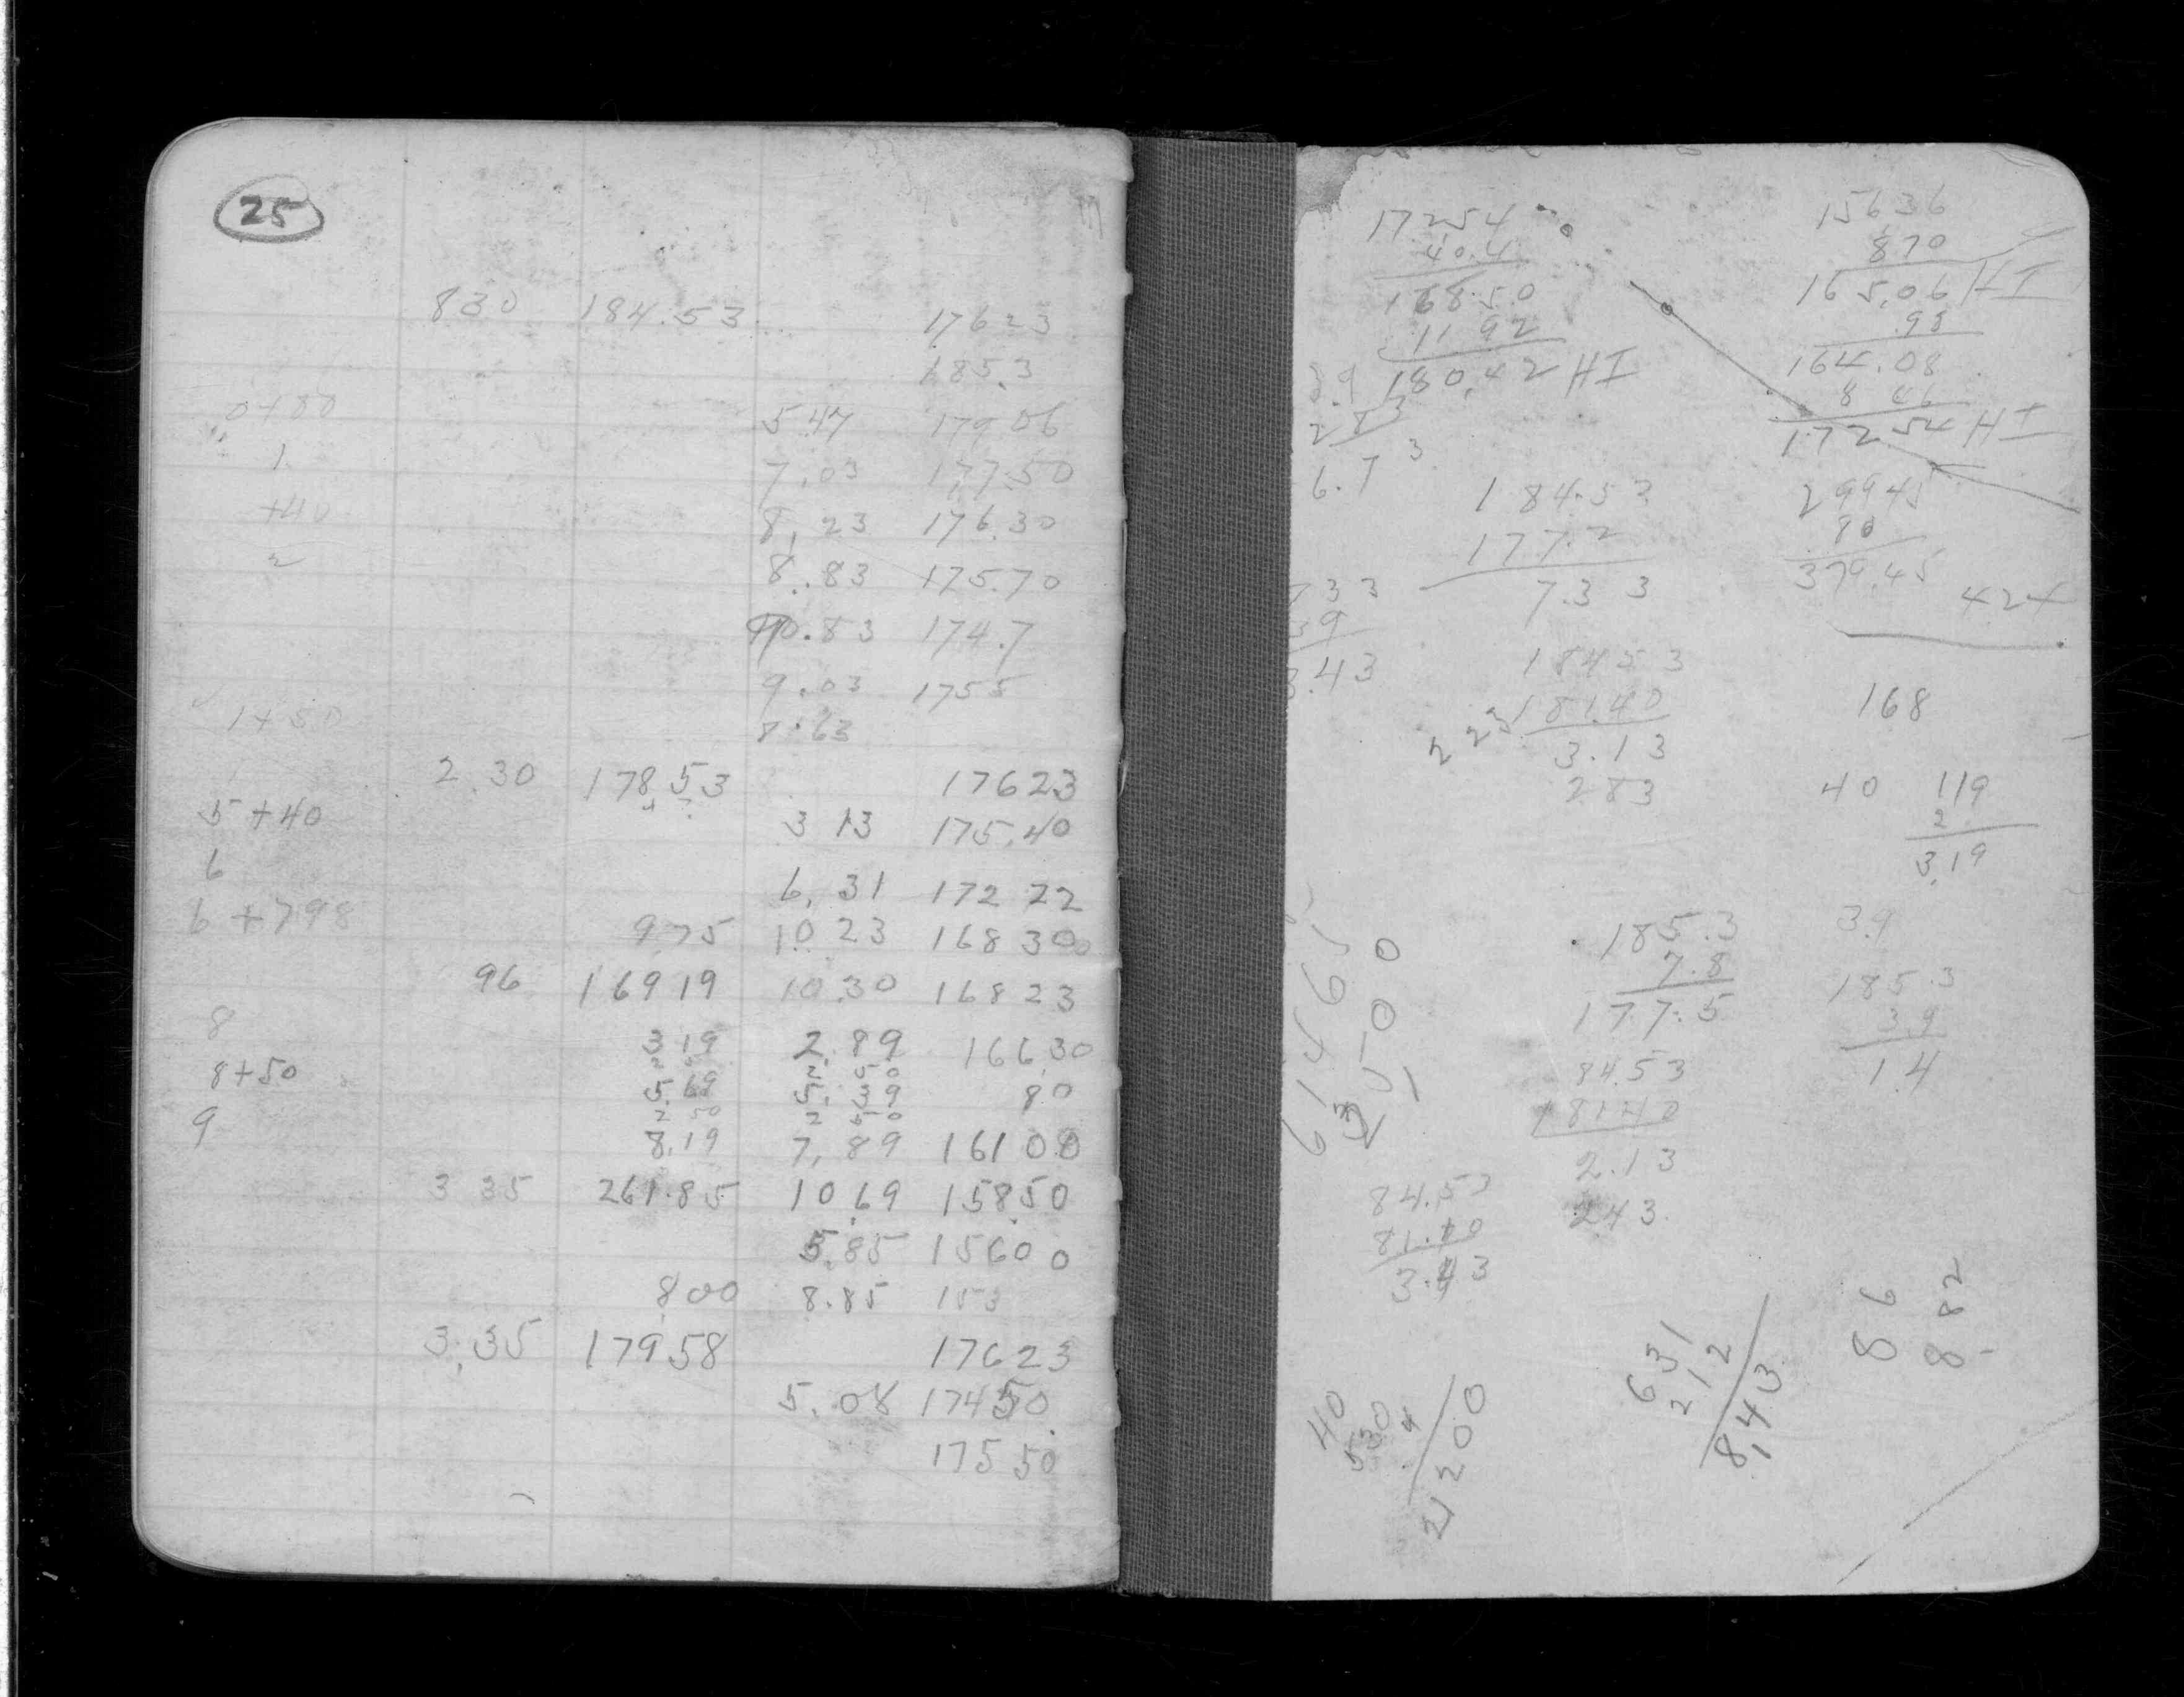 25
830 184.53 17623
185.3
0+80 5 47 179 06
1 7.03 177.50
+40 8.23 176.30
2 8.83 175.70
10.83 174.7
9.03 1755
1+50 8.63
2.30 178.53 17623
5+40 3 13 175.40
6 6.31 172 22
6 +798 9.75 10 23 168 30
96 169 19 10.30 168 23
8 3 19 2.89 166.30
2 50
8+50 5.69 5.39 80
2 50 2 50
9 8.19 7.89 161 00
3 35 261.85 10.69 158.50
5.85 156 0 0
8 00 8.85 153
3.35 179 58 176 23
5.08 174 50
175 50
17254
40.4
168.50
11 92
180.42 HI
15636
870
165.06 HI
.98
164.08
8 46
172 54 HI
283
6.7 3
184.53
177.2
7.3 3
299 45
80
379.45
424
733
39
3.43
184 5 3
181.40
3.13
283
2 23
168
40 119
2
3.19
185.3
7.8
177.5
39
185.3
3.9
1.4
61465
2500
84.53
8140
2.13
243
84.53
3.43
631
212
8.43
86
882
40
530
4
21200